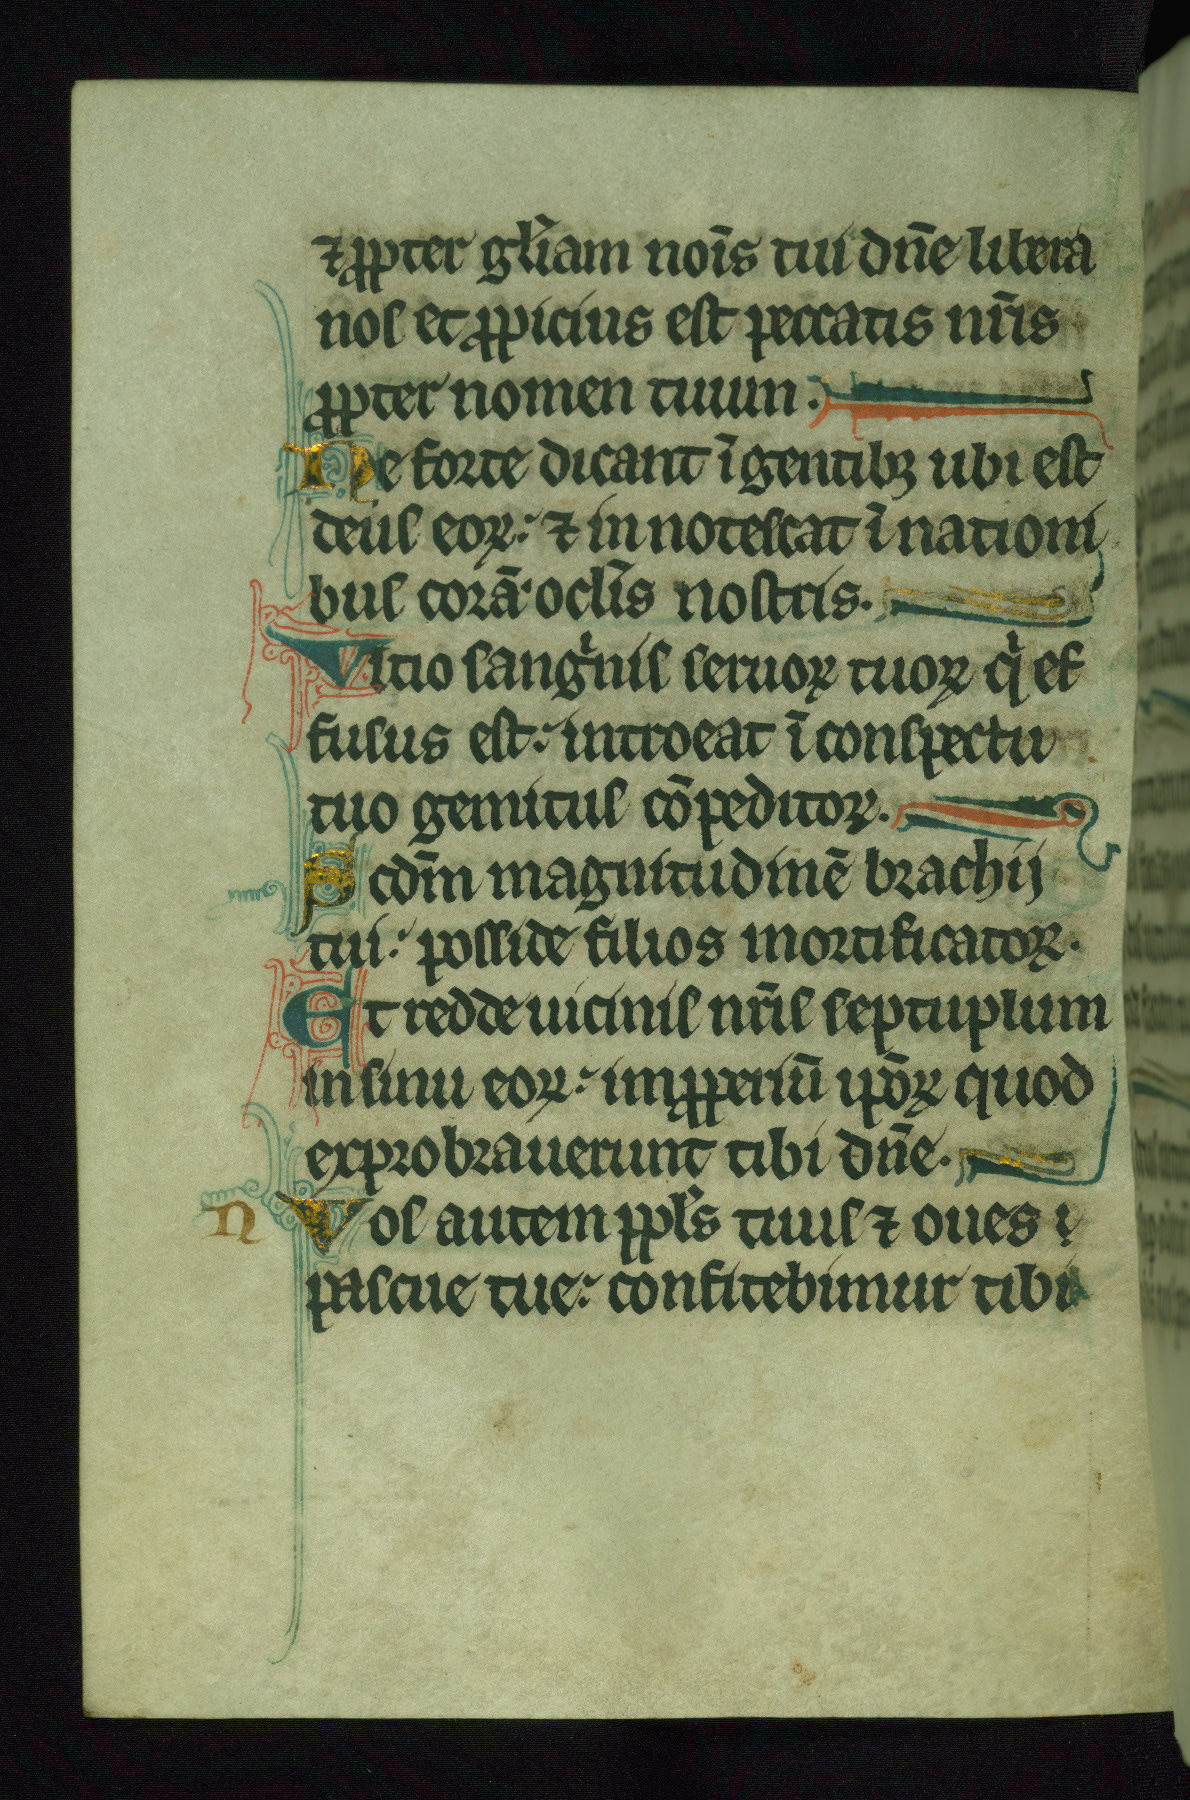 ⁊ ꝓpter gl̄iam noīs tui dn̄e libera
nos et ꝓpicius est peccatis nr̄is
ꝓpter nomen tuum:
Ne forte dicant ī gentibꝫ ubi est
deus eoꝝ: ⁊ innotescat ī nationi
bus corā oclīs nostris.
Vltio sangͥnis seruoꝝ tuoꝝ qͥ ef
fusus est: introeat ī conspectu
tuo gemitus cōpeditoꝝ.
Scdm̄ magnitudinē brachij
tui: posside filios mortificatoꝝ.
Et redde uicinis nr̄is septuplum
in sinu eoꝝ: imꝓperiū ipōꝝ quod
exprobrauerunt tibi dn̄e.
N Nos autem ppl̄s tuus ⁊ oues
pascue tue: confitebimur tibi